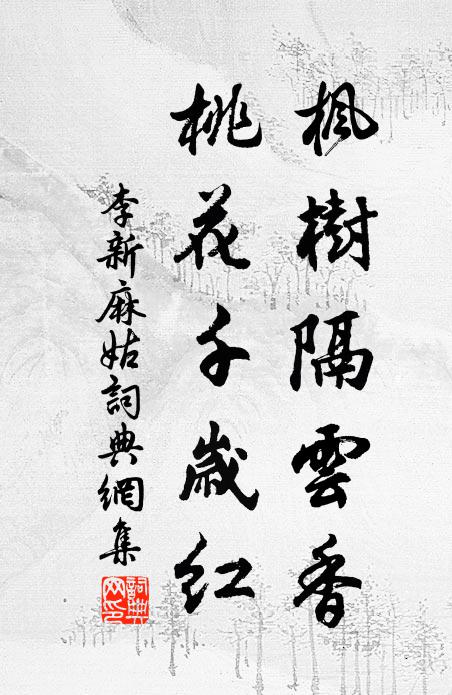 楓樹隔雲香
桃花千歲紅
李新麻姑詞典網集
詞典网印